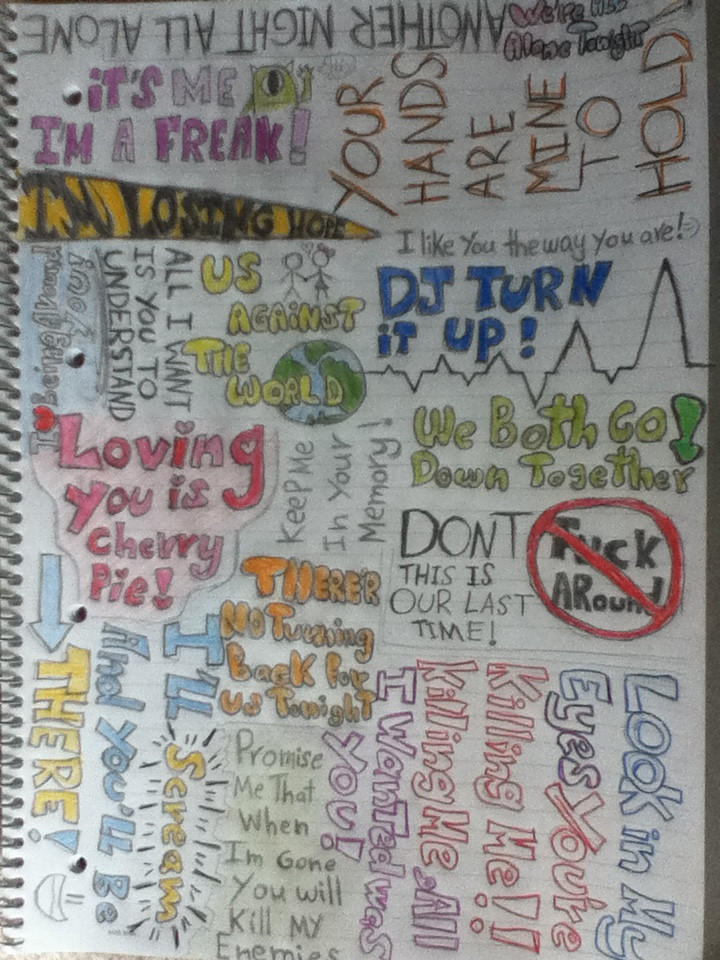 ANOTHER NIGHT ALL ALONE
We're Not
Alone Tonight
iT'S ME
I'M A FREAK!
YOUR
HANDS
ARE
MINE
TO
HOLD
I'M LOSING HOPE
I like You the way you are!
ALL I WANT
IS YOU TO
UNDERSTAND
US
AGAiNST
THE
WORLD
DJ TURN
iT UP!
We Both Go
Down Together!
Loving
you is
Cherry
Pie!
Keep Me
In Your
Memory!
DONT
Fuck
ARound
THIS IS
OUR LAST
TIME!
THERE'R
No Turning
Back For
us Tonight
I'LL
Scream
And You'll Be
THERE!
Promise
Me That
When
Im Gone
You will
Kill MY
Enemies
Look in My
Eyes You're
Killing Me!!
Killing Me All
I Wanted was
You!